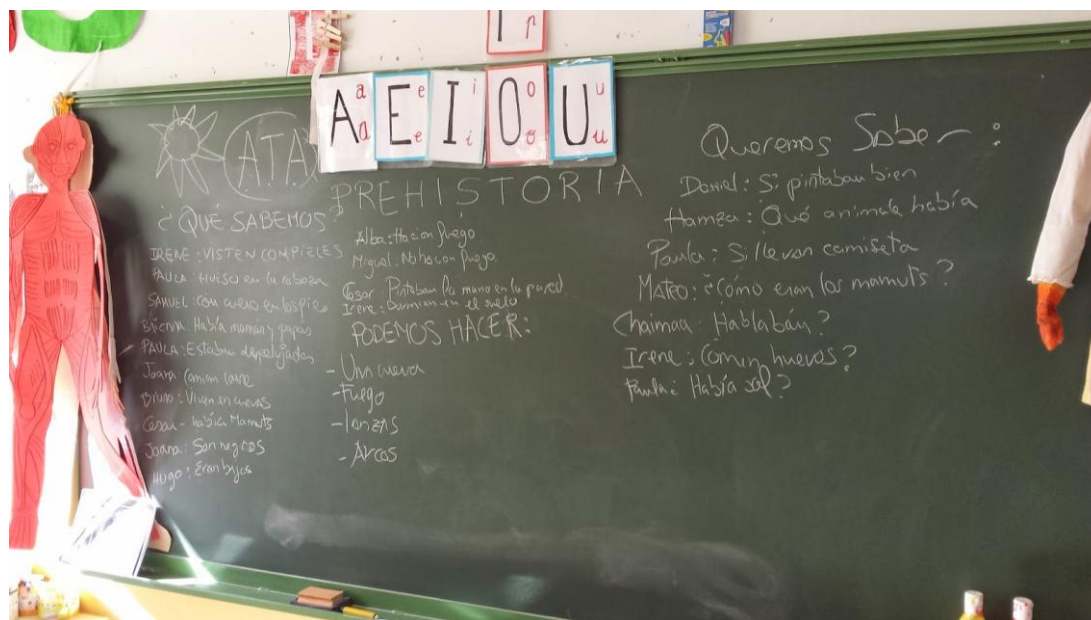 I r
A a a
E e e
I i i
O o o
U u u
ATA
PREHISTORIA
¿QUÉ SABEMOS?
IRENE: VISTEN CON PIELES
PAULA: HUESO en la cabeza
SAMUEL: con cuero en los pies
Brienna: Había mamás y papás
PAULA: Estaban despelujados
Joana Comían carne
Bruno: Viven en cuevas
César - había Mamuts
Joana: Son negros
Hugo: Eran bajos
Alba: Hacían fuego
Miguel: No había fuego
César: Pintaban la mano en la pared
Irene: Dormían en el suelo
PODEMOS HACER:
- Una cueva
- Fuego
- lanzas
- Arcos
Queremos Saber:
Daniel: Si pintaban bien
Hamza: Qué animales había
Paula: Si llevan camiseta
Mateo: ¿Cómo eran los mamuts?
Chaimaa: Hablabán?
Irene: Comían huevos?
Paula: Había sal?